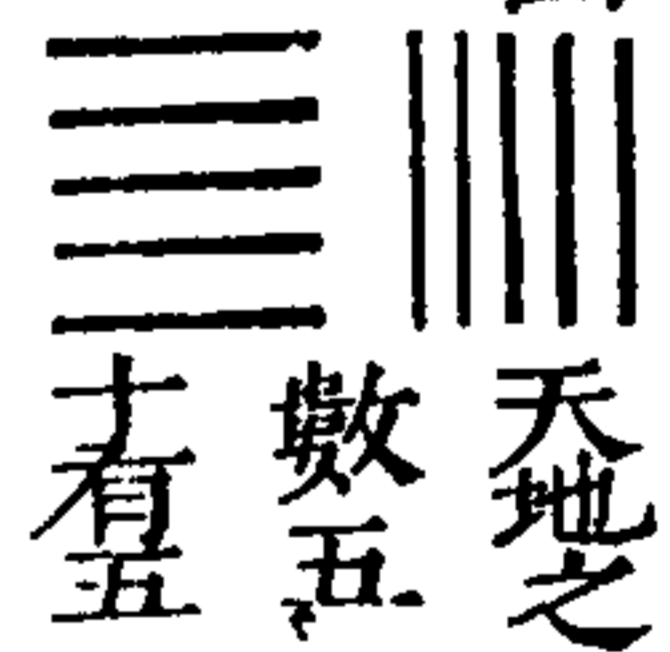 天地之
數五
十有五